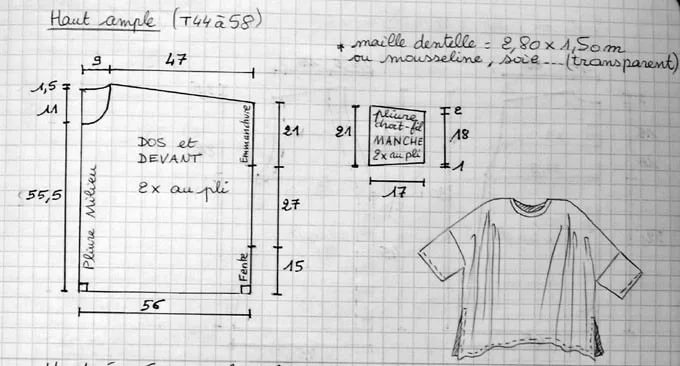 Haut ample (T44 à 58)
* maille dentelle = 2,80 x 1,50m
ou mousseline, soie ... (transparent)
9
47
1,5
11
55,5
DOS et
DEVANT
2x au pli
Pliure Milieu
Emmanchure
Fente
21
27
15
56
21
pliure
droit-fil
MANCHE
2x au pli
2
18
1
17